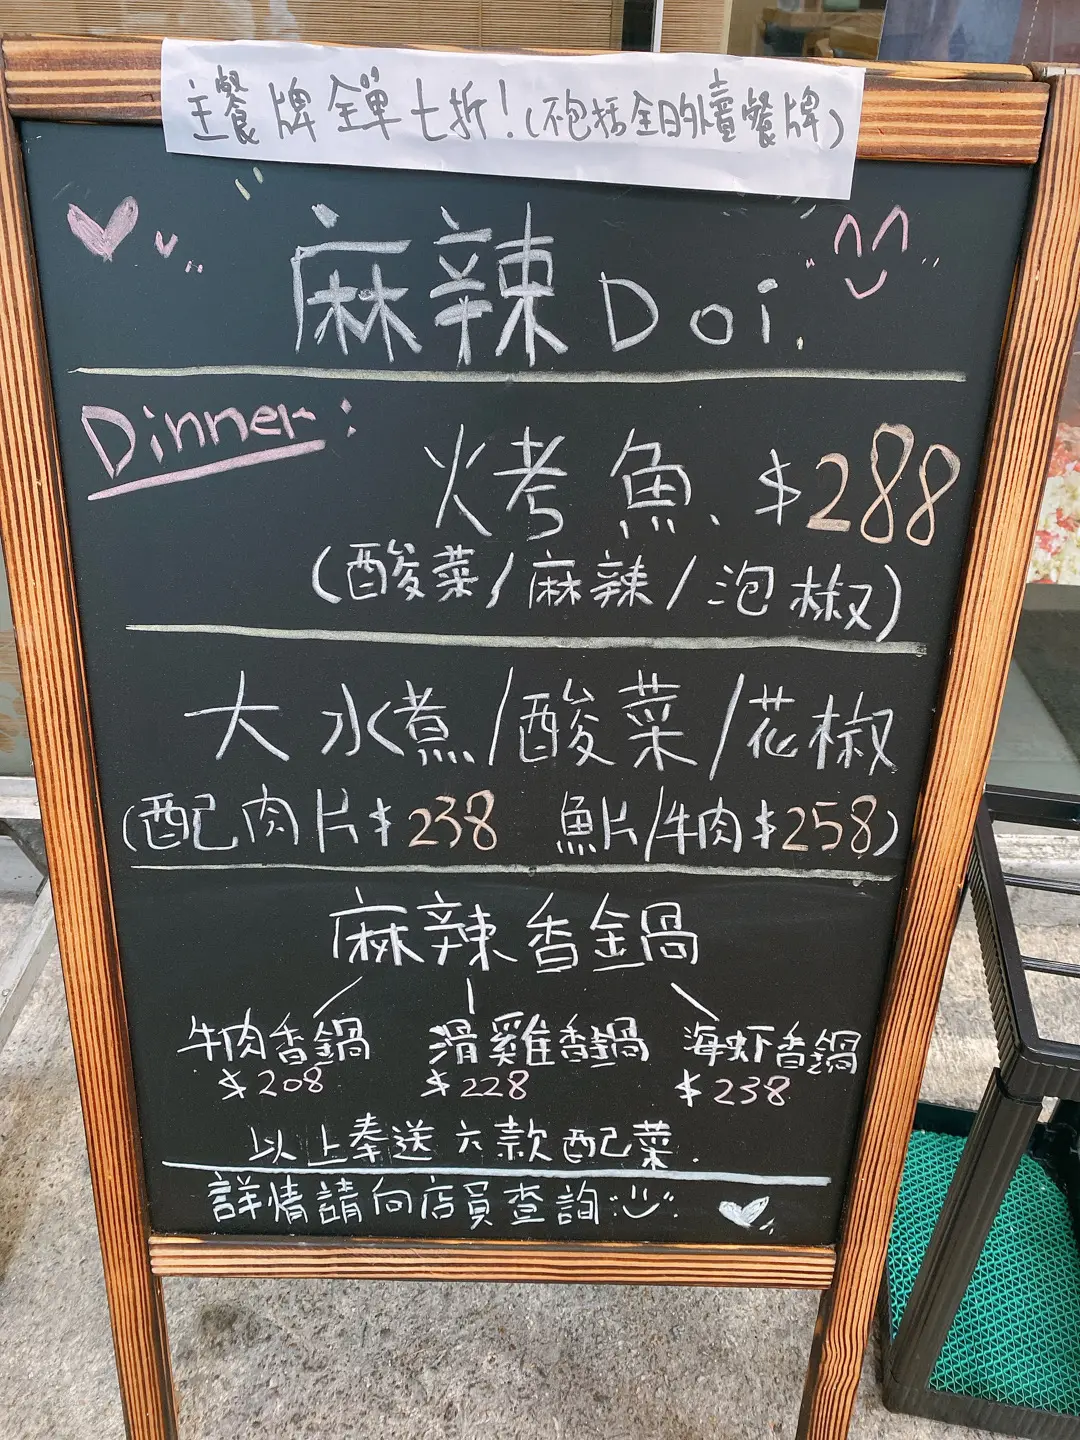 主餐牌全單七折!(不包括全日外賣餐牌)
麻辣Doi.
Dinner:
火考魚、$288
(酸菜/麻辣/泡椒)
大水煮/酸菜/花椒
(配肉片$238 魚片/牛肉$258)
麻辣香鍋
牛肉香鍋 滑雞香鍋 海虾香鍋
$208 $228 $238
以上奉送六款配菜.
詳情請向店員查詢